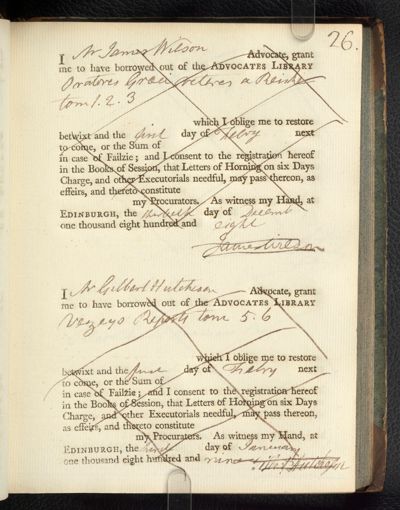 26.
I Mr James Wilson Advocate, grant
me to have borrowed out of the ADVOCATES LIBRARY
Oratores Graeci veteres a Reiske
tom 1. 2. 3
which I oblige me to restore
betwixt and the first day of Febry next
to come, or the Sum of
in case of Failzie; and I consent to the registration hereof
in the Books of Session, that Letters of Horning on six Days
Charge, and other Executorials needful, may pass thereon, as
effeirs, and thereto constitute
my Procurators. As witness my Hand, at
EDINBURGH, the day of Decemb
one thousand eight hundred and eight
James Wilson
I Mr Gilbert Hutcheson Advocate, grant
me to have borrowed out of the ADVOCATES LIBRARY
Vezeys Reports tom 5. 6
which I oblige me to restore
betwixt and the first day of Febry next
to come, or the Sum of
in case of Failzie; and I consent to the registration hereof
in the Books of Session, that Letters of Horning on six Days
Charge, and other Executorials needful, may pass thereon,
as effeirs, and thereto constitute
my Procurators. As witness my Hand, at
EDINBURGH, the day of January
one thousand eight hundred and nine Hutcheson